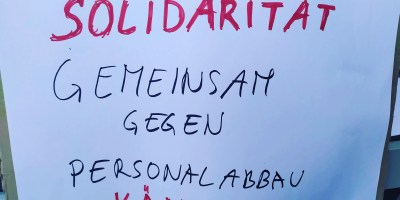 SOLIDARITÄT
GEMEINSAM
GEGEN
PERSONALABBAU